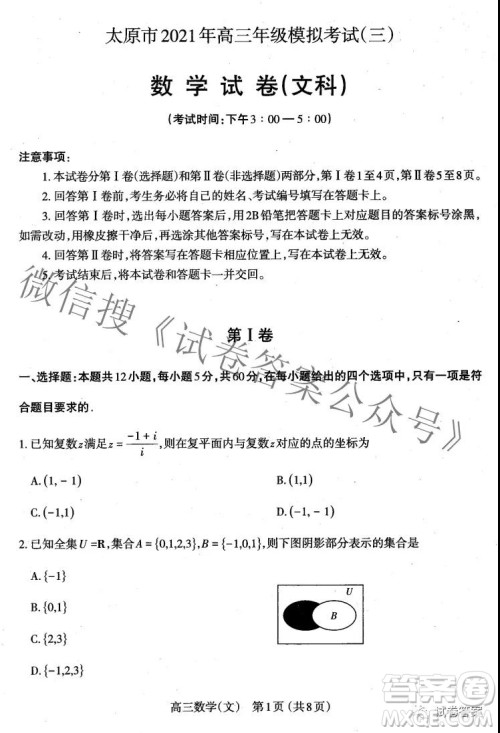 太原市2021年高三年级模拟考试(三)
数学试卷(文科)
(考试时间:下午3:00—5:00)
注意事项:
1.本试卷分第Ⅰ卷(选择题)和第Ⅱ卷(非选择题)两部分,第Ⅰ卷1至4页,第Ⅱ卷5至8页。
2.回答第Ⅰ卷前,考生务必将自己的姓名、考试编号填写在答题卡上。
3.回答第Ⅰ卷时,选出每小题答案后,用2B铅笔把答题卡对应题目的答案标号涂黑,
如需改动,用橡皮擦干净后,再选涂其他答案标号,写在本试卷上无效。
4.回答第Ⅱ卷时,将答案写在答题卡相应位置上,写在本试卷上无效。
5.考试结束后,将本试卷和答题卡一并交回。
第Ⅰ卷
一、选择题:本题共12小题,每小题5分,共60分,在每小题给出的四个选项中,只有一项是符
合题目要求的.
1.已知复数z满足z=(-1+i)/i,则在复平面内与复数z对应的点的坐标为
A.(1,-1) B.(1,1)
C.(-1,1) D.(-1,-1)
2.已知全集U=R,集合A={0,1,2,3},B={-1,0,1},则下图阴影部分表示的集合是
A.{-1}
B.{0,1}
C.{2,3}
D.{-1,2,3}
U
B
高三数学(文) 第1页(共8页)
微信搜《试卷答案公众号》
试卷答案
作业帮
www.mxqe.com